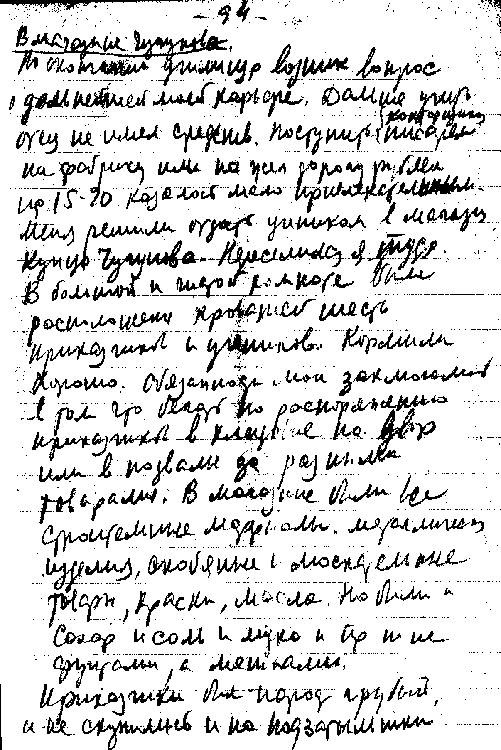 - 94 -
В магазине Чугунова.
По окончании училища возник вопрос
о дальнейшей моей карьере. Дальше учить
отец не имел средств. Поступить конторщиком писарем
на фабрику или на жел дорогу рублей
на 15-20 казалось мало привлекательным.
Меня решили отдать учеником в магазин
купца Чугунова. Переселился я туда.
В большой и комнате были
расположены кроватей шесть
приказчиков и учеников. Кормили
хорошо. Обязанности мои заключались
в том что бегать по распоряжению
приказчиков в кладовые на двор
или в подвалы за разными
товарами. В магазине были все
строительные материалы, металлические
изделия, скобяные и москательные
товары, краски, масла. Но были и
сахар и соль и мука и пр и не
фунтами, а мешками.
Приказчики был народ грубый,
и не скупились и на подзатыльники